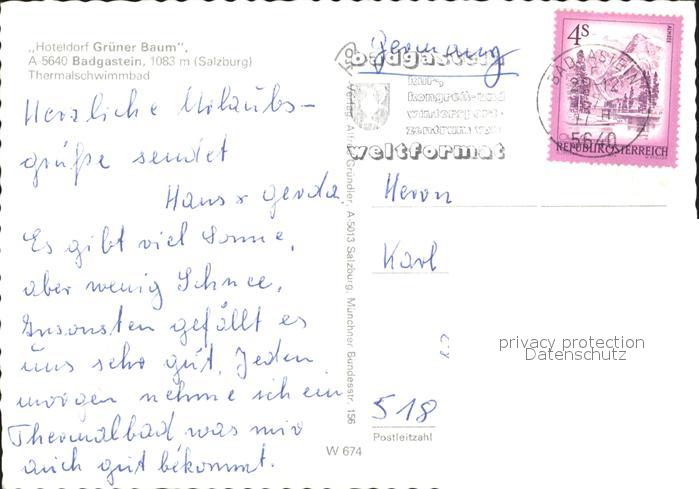 „Hoteldorf Grüner Baum",
A-5640 Badgastein, 1083 m (Salzburg)
Thermalschwimmbad
Herzliche Urlaubs-
grüße sendet
Hans + Gerda
Es gibt viel Sonne,
aber wenig Schnee,
Ansonsten gefällt es
uns sehr gut. Jeden
morgen nehme ich ein
Thermalbad, was mir
auch gut bekommt.
Verlag
Gründler, A-5013 Salzburg, Münchner Bundesstr. 156
W 674
Germany
badgastein
kur-,
kongreß- und
wintersport-
zentrum von
weltformat
4 S
REPUBLIK ÖSTERREICH
BADGASTEIN
5640
Herrn
Karl
privacy protection
Datenschutz
518
Postleitzahl